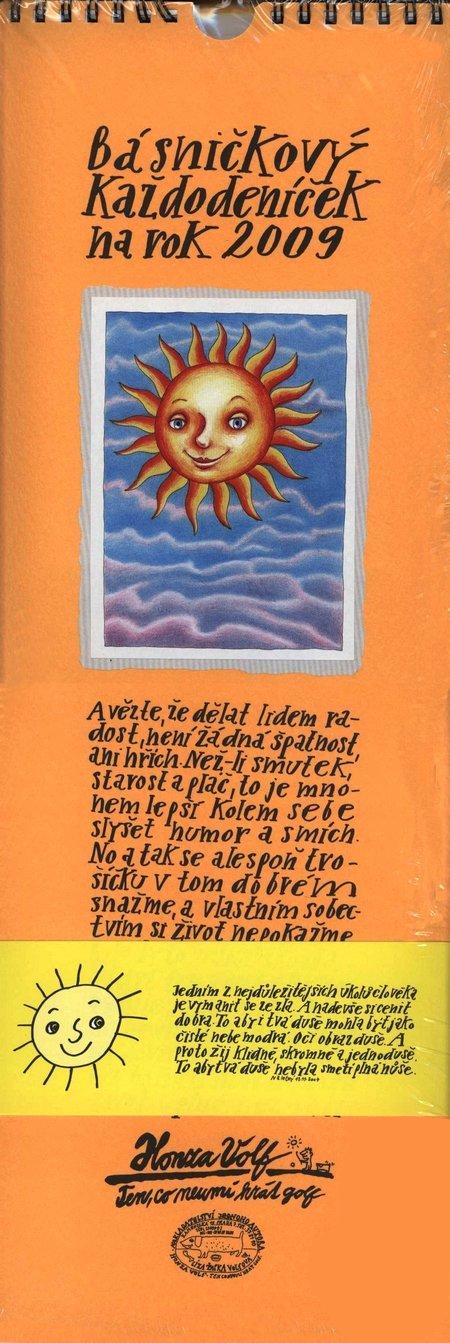 Básničkový
Každodeníček
na rok 2009
A vězte, že dělat lidem ra-
dost, není žádná špatnost,
ani hřích. Než-li smutek,
starost a pláč, to je mno-
hem lepší kolem sebe
slyšet humor a smích.
No a tak se alespoň tro-
šičku v tom dobrém
snažme, a vlastním sobec-
tvím si život nepokažme
Jedním z nejdůležitějších úkolů člověka
je vymanit se ze zla. A nadevše si cenit
dobra. To aby i tvá duše mohla být jako
čisté nebe modrá. Očí obraz duše. A
proto žij klidně, skromně a jednoduše.
To aby tvá duše nebyla smetí plná nůše.
Honza Volf
Ten, co neumí hrát golf